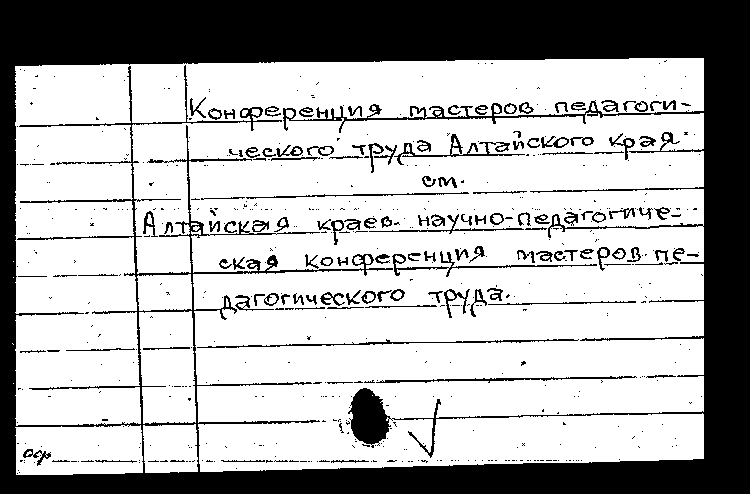 Конференция мастеров педагоги-
ческого труда Алтайского края
см.
Алтайская краев. научно-педагогиче-
ская конференция мастеров пе-
дагогического труда.